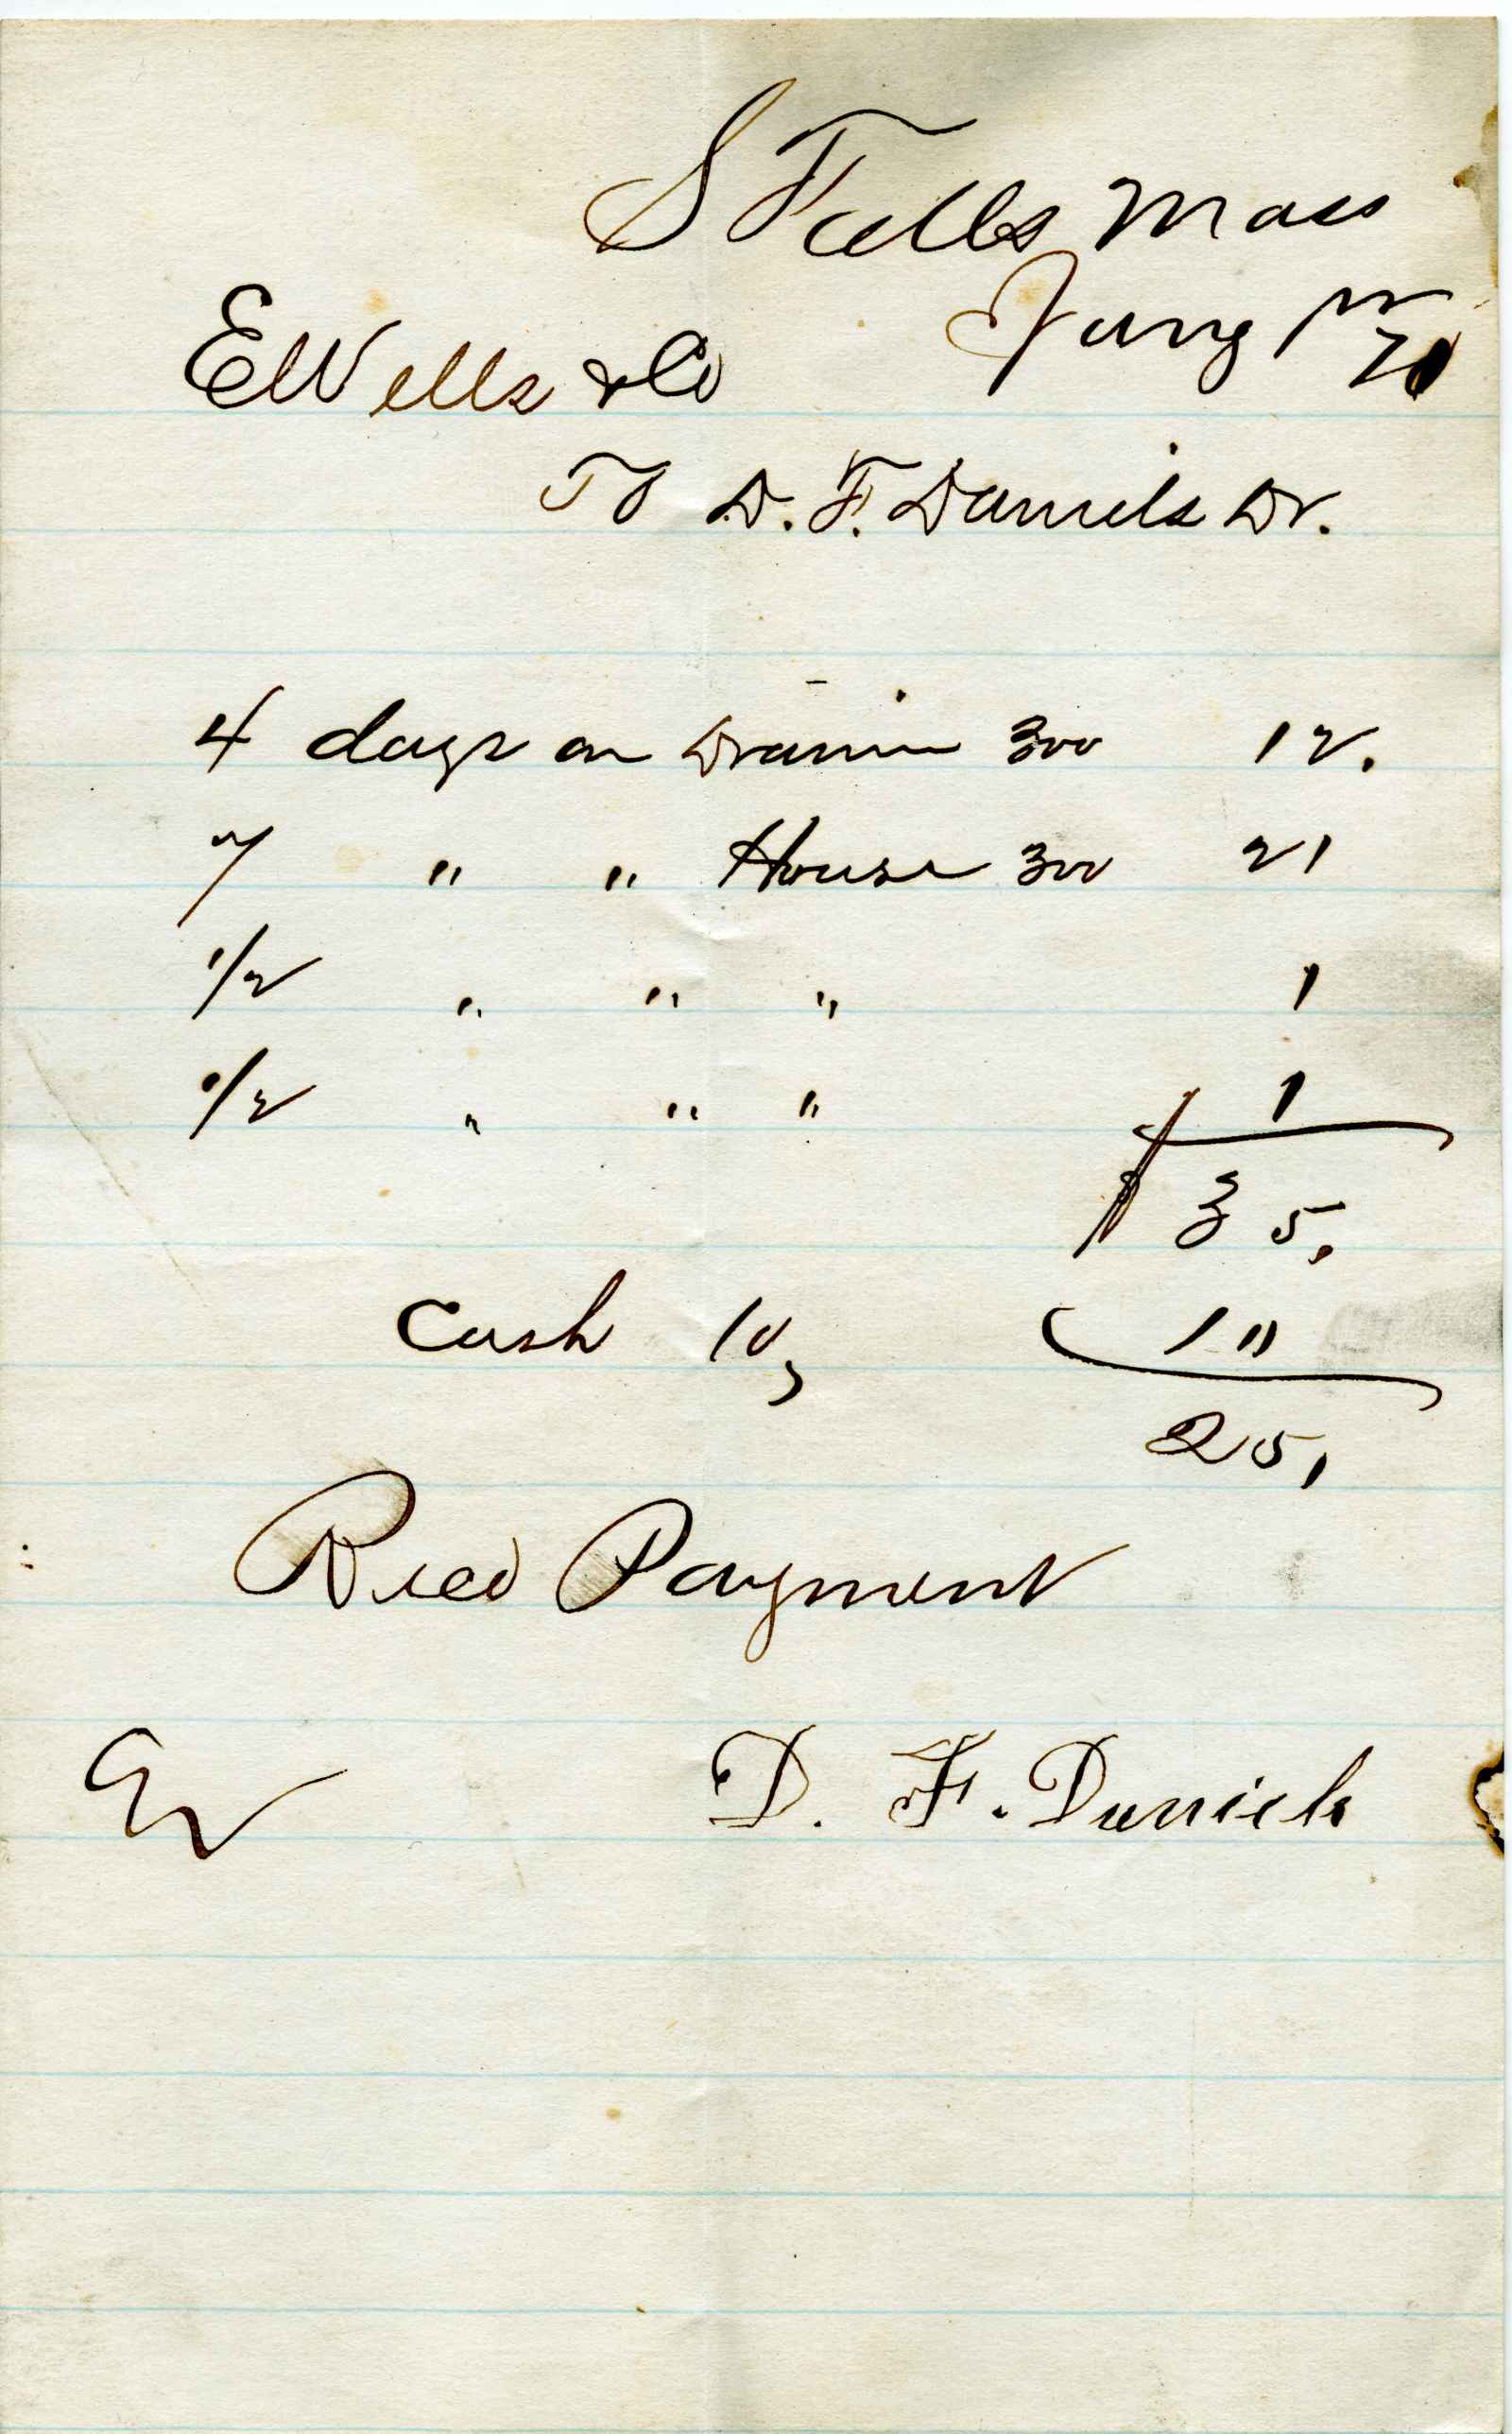 S Falls Mass
Jany 1st 70
E Wells & Co
To D. F. Daniels Dr.
4 days on Drain 300 12.
7 " " House 300 21
1/2 " " " 1
1/2 " " " 1
$ 35.
Cash 10, 10
25,
Recd Payment
EW D. F. Daniels